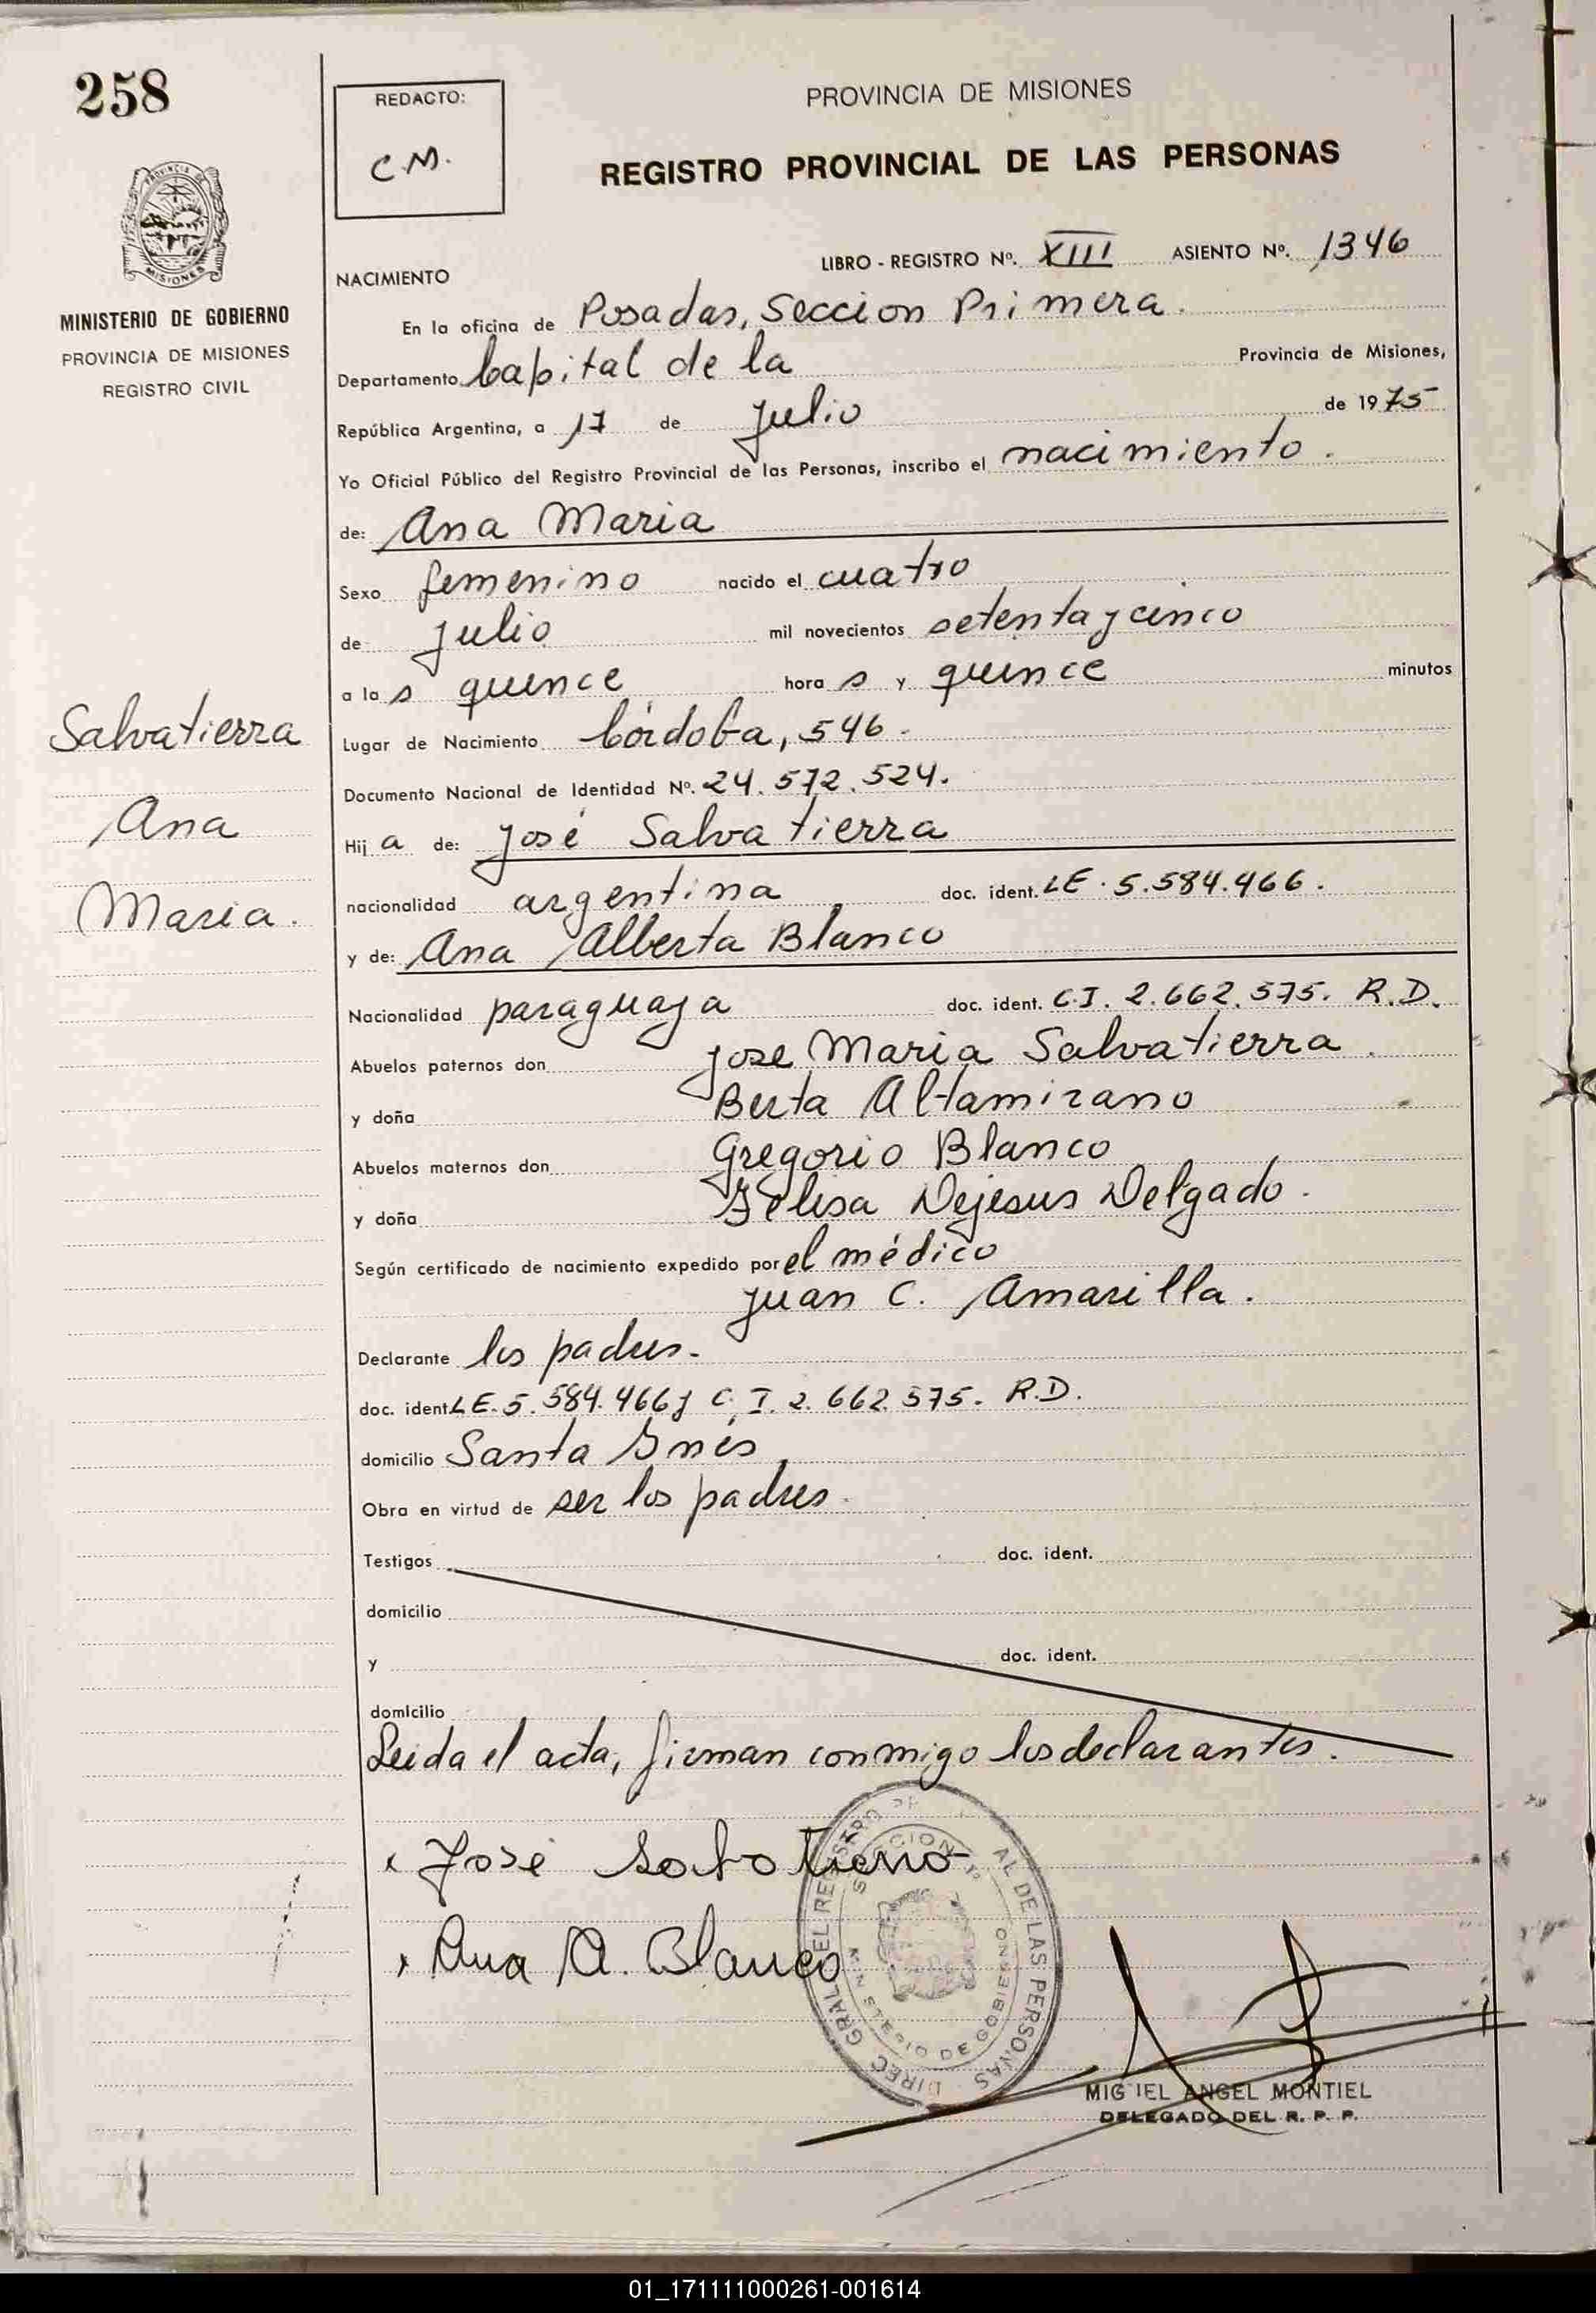 258
REDACTO:
C.M.
PROVINCIA DE MISIONES
REGISTRO PROVINCIAL DE LAS PERSONAS
PROVINCIA DE
MISIONES
MINISTERIO DE GOBIERNO
PROVINCIA DE MISIONES
REGISTRO CIVIL
NACIMIENTO
LIBRO - REGISTRO Nº. XIII ASIENTO Nº. 1346
En la oficina de Posadas, Seccion Primera.
Departamento Capital de la Provincia de Misiones,
República Argentina, a 17 de Julio de 1975
Yo Oficial Público del Registro Provincial de las Personas, inscribo el nacimiento.
de: Ana Maria
Sexo femenino nacido el cuatro
de Julio mil novecientos setenta y cinco
a la s quince hora s y quince minutos
Lugar de Nacimiento Córdoba, 546.
Documento Nacional de Identidad Nº. 24.572.524.
Hij a de: José Salvatierra
nacionalidad argentina doc. ident. LE. 5.584.466.
y de: Ana Alberta Blanco
Nacionalidad paraguaya doc. ident. C.I. 2.662.575. R.D.
Abuelos paternos don Jose Maria Salvatierra.
y doña Berta Altamirano
Abuelos maternos don Gregorio Blanco
y doña Felisa Dejesus Delgado.
Según certificado de nacimiento expedido por el médico
Juan C. Amarilla.
Declarante los padres.
doc. ident. LE. 5.584.466 y C.I. 2.662.575. R.D.
domicilio Santa Inés
Obra en virtud de ser los padres.
Testigos doc. ident.
domicilio
y doc. ident.
domicilio
Leida el acta, firman conmigo los declarantes.
Salvatierra
Ana
Maria.
José Salvatierra
Ana A. Blanco
DIREC. GRAL DEL REGISTRO AL DE LAS PERSONAS
SECCION 1º
MINISTERIO DE GOBIERNO
MIGUEL ANGEL MONTIEL
DELEGADO DEL R. P. P.
01_171111000261-001614